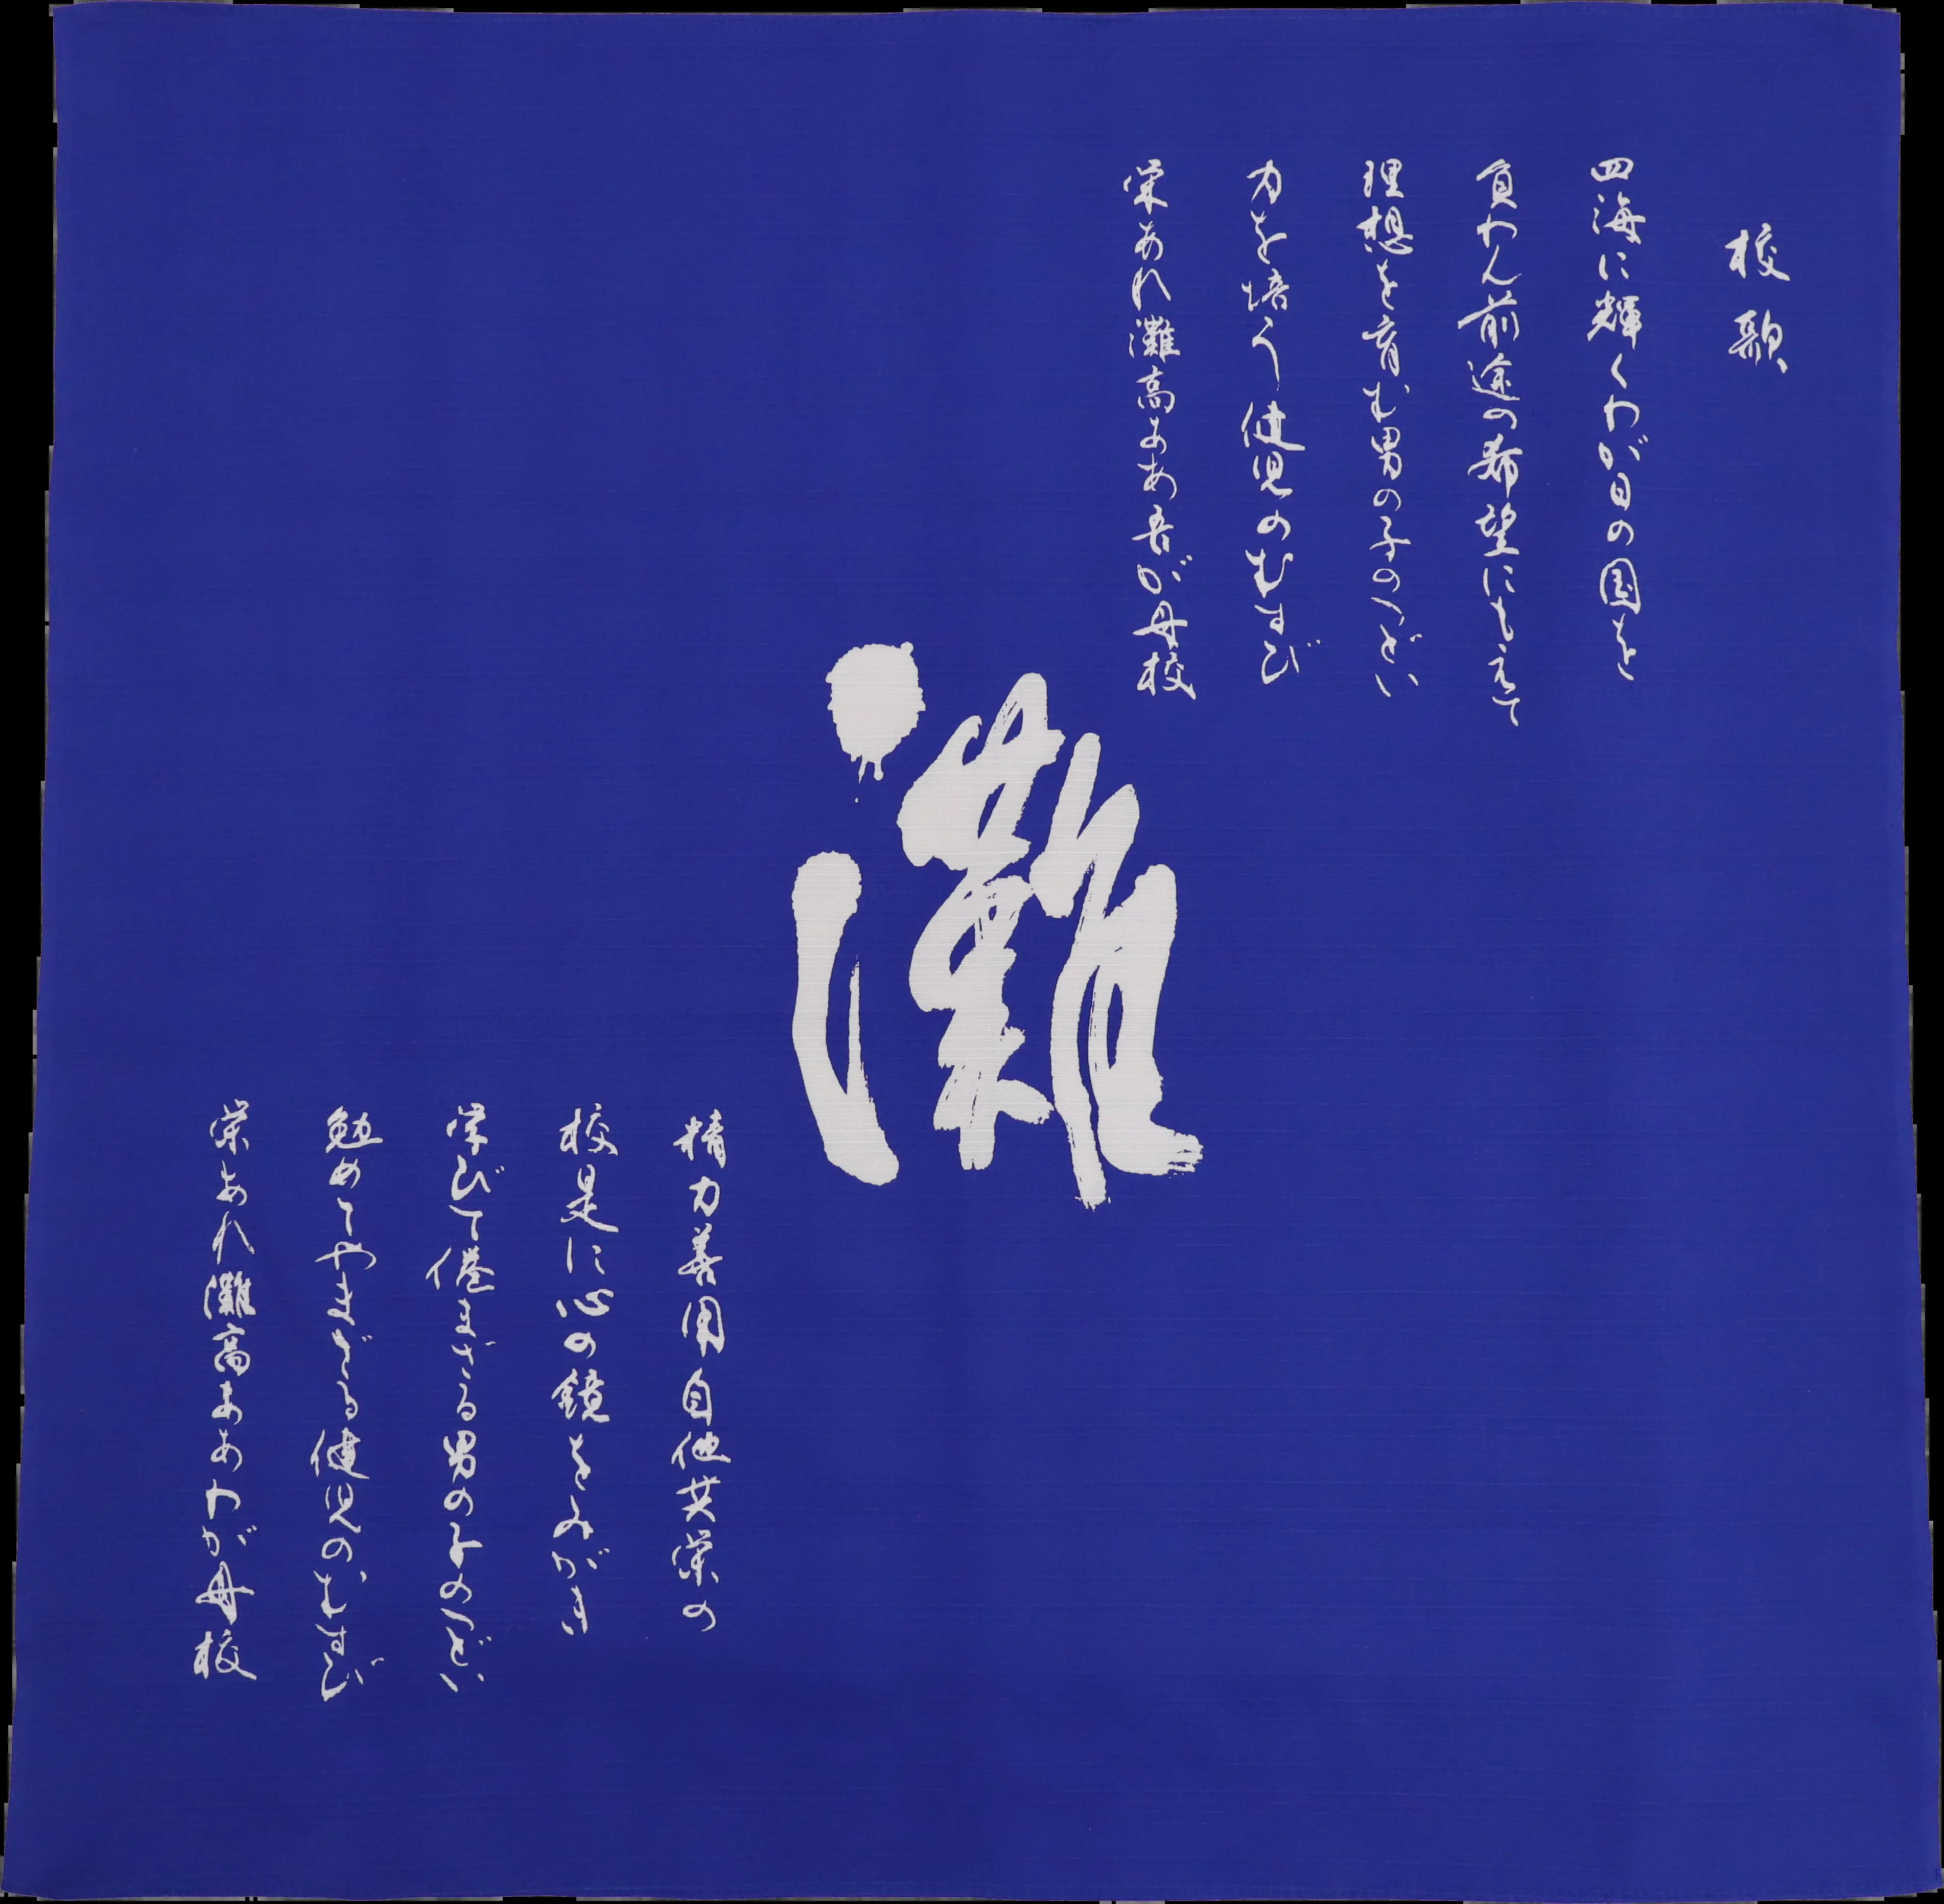 校歌
四海に輝くわが日の国を
負わん前途の希望にもえて
理想を育む男の子のつどい
力を培う健児のむすび
栄あれ灘高ああ吾が母校
灘
精力善用自他共栄の
校是に心の鏡をみがき
学びて倦まざる男の子のつどい
勉めてやまざる健児のむすび
栄あれ灘高ああわが母校